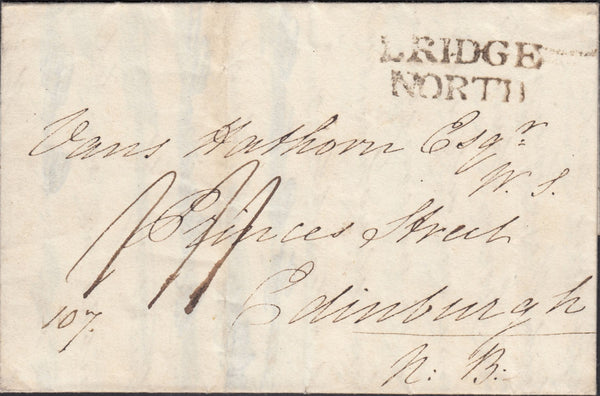 BRIDGE
NORTH
Vans Hathorn Esqr.
W. S.
Princes Street
107.
Edinburgh
N: B: